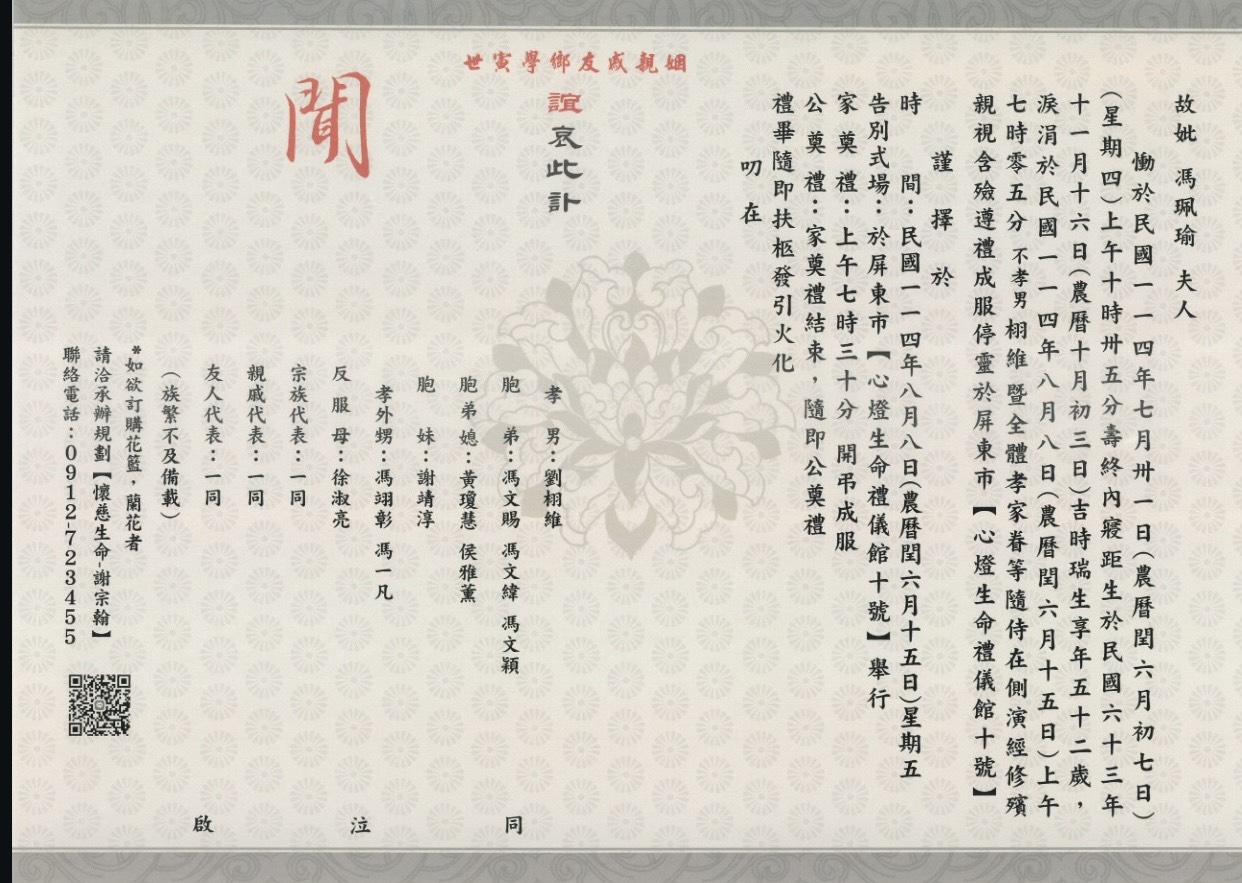 故妣 馮珮瑜 夫人
慟於民國一一四年七月卅一日(農曆閏六月初七日)
(星期四)上午十時卅五分壽終內寢距生於民國六十三年
十一月十六日(農曆十月初三日)吉時瑞生享年五十二歲，
淚涓於民國一一四年八月八日(農曆閏六月十五日)上午
七時零五分 不孝男栩維 暨全體孝家眷等隨侍在側演經修殯
親視含殮遵禮成服停靈於屏東市【心燈生命禮儀館十號】
謹擇於
時間：民國一一四年八月八日(農曆閏六月十五日)星期五
告別式場：於屏東市【心燈生命禮儀館十號】舉行
家奠禮：上午七時三十分 開弔成服
公奠禮：家奠禮結束，隨即公奠禮
禮畢隨即扶柩發引火化
叨在
姻親戚友鄉學寅世
誼哀此訃
聞
孝男：劉栩維
胞弟：馮文賜 馮文緯 馮文穎
胞弟媳：黃瓊慧 侯雅薰
胞妹：謝靖淳
孝外甥：馮翊彰 馮一凡
反服母：徐淑亮
宗族代表：一同
親戚代表：一同
友人代表：一同
(族繁不及備載)
同泣啟
*如欲訂購花籃，蘭花者
請洽承辦規劃【懷慈生命-謝宗翰】
聯絡電話：0912-723455